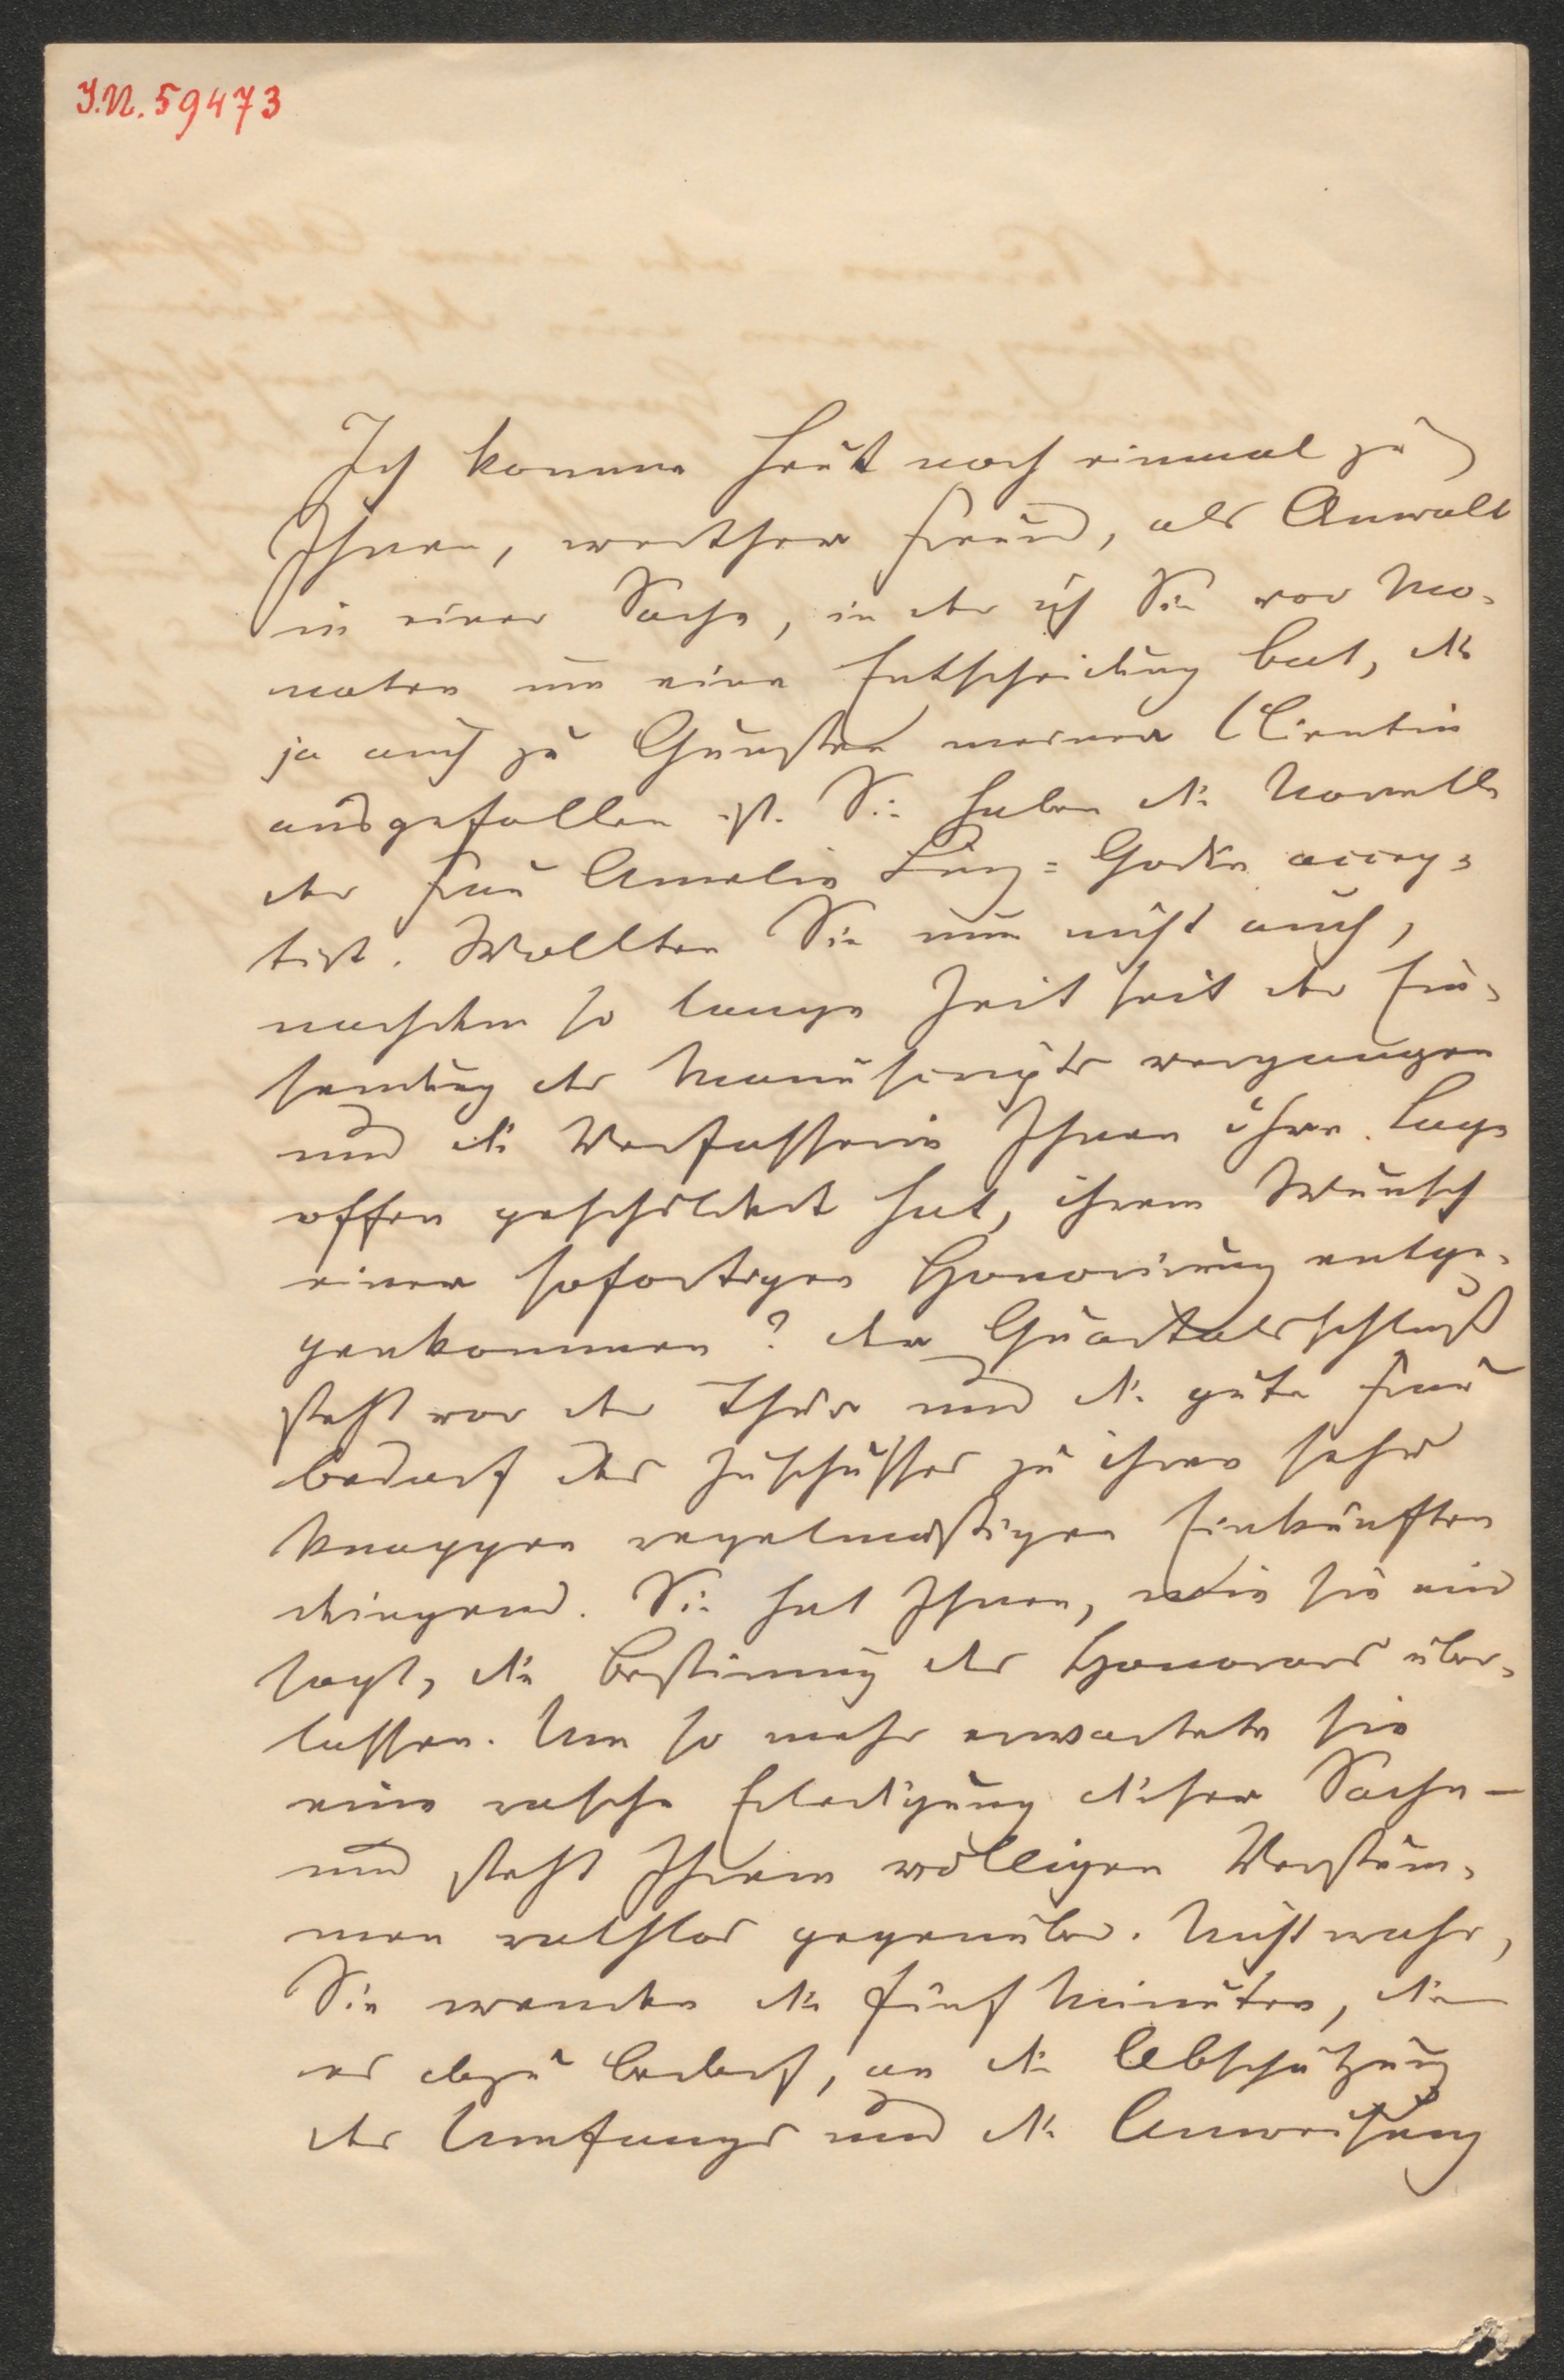 J.N. 59473
Ich komme heut noch einmal zu
Ihnen, werther Freund, als Anwalt
in einer Sache, in der ich Sie vor Mo-
naten um eine Entscheidung bat, die
ja auch zu Gunsten meiner Clientin
ausgefallen ist. Sie haben die Novelle
der Frau Amelie Godin accep-
tirt. Wollten Sie nun nicht auch,
nachdem so lange Zeit seit der Ein-
sendung des Manuscripts vergangen
und die Verfasserin Ihnen ihre Lage
offen geschildert hat, ihrem Wunsch
einer sofortigen Honorirung entge-
genkommen? Der Quartalsschluß
steht vor der Thür und die gute Frau
bedarf des Zuschusses zu ihren sehr
knappen regelmäßigen Einkünften
dringend. Sie hat Ihnen, wie sie mir
sagt, die Bestimmung des Honorars über-
lassen. Um so mehr erwartete sie
eine rasche Erledigung dieser Sache –
und steht Ihrem völligen Verstum-
men rathlos gegenüber. Nicht wahr,
Sie wenden die fünf Minuten, die
es dazu bedarf, an die Abschätzung
des Umfangs und die Anweisung